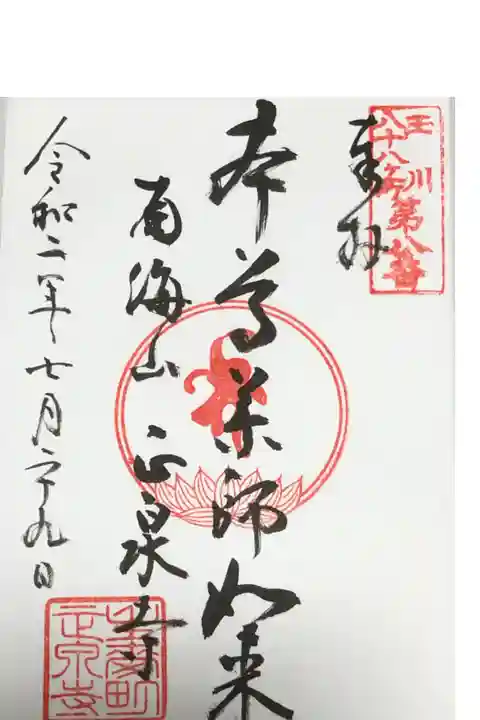 玉川
八十八ヶ所
第八番
奉拝
本尊薬師如来
南海山 正泉寺
令和二年七月二十九日